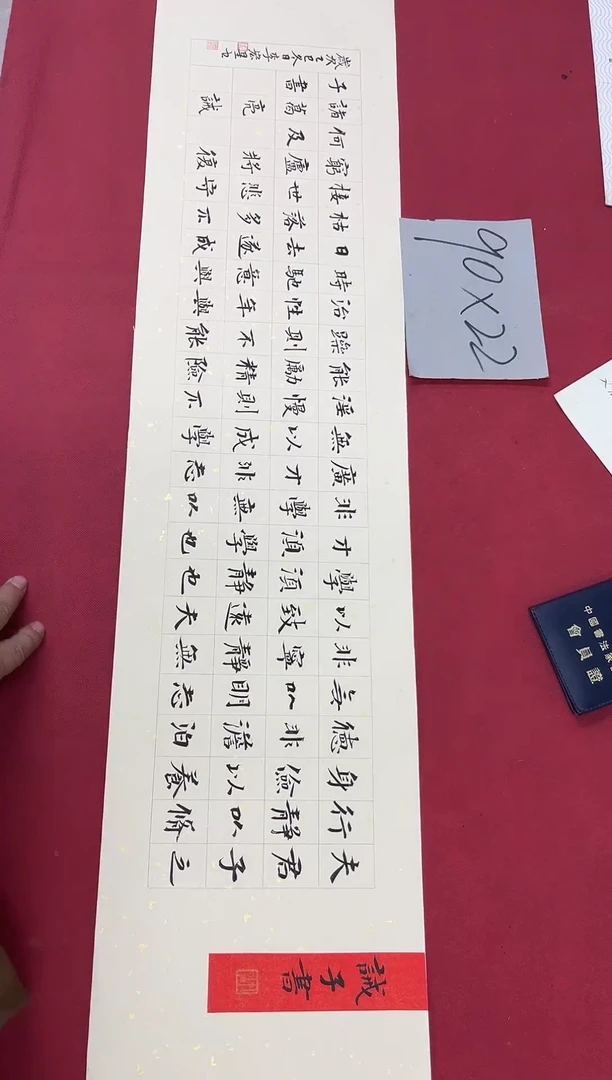 誡子書
夫君子之
行靜以修
身儉以養
德非澹泊
無以明志
非寧靜無
以致遠夫
學須靜也
才須學也
非學無以
廣才非志
無以成學
淫慢則不
能勵精險
躁則不能
治性年與
時馳意與
日去遂成
枯落多不
接世悲守
窮廬將復
何及
諸葛亮誡
子書
歲次乙巳冬日李宏
90X22
中國書法家
會員證